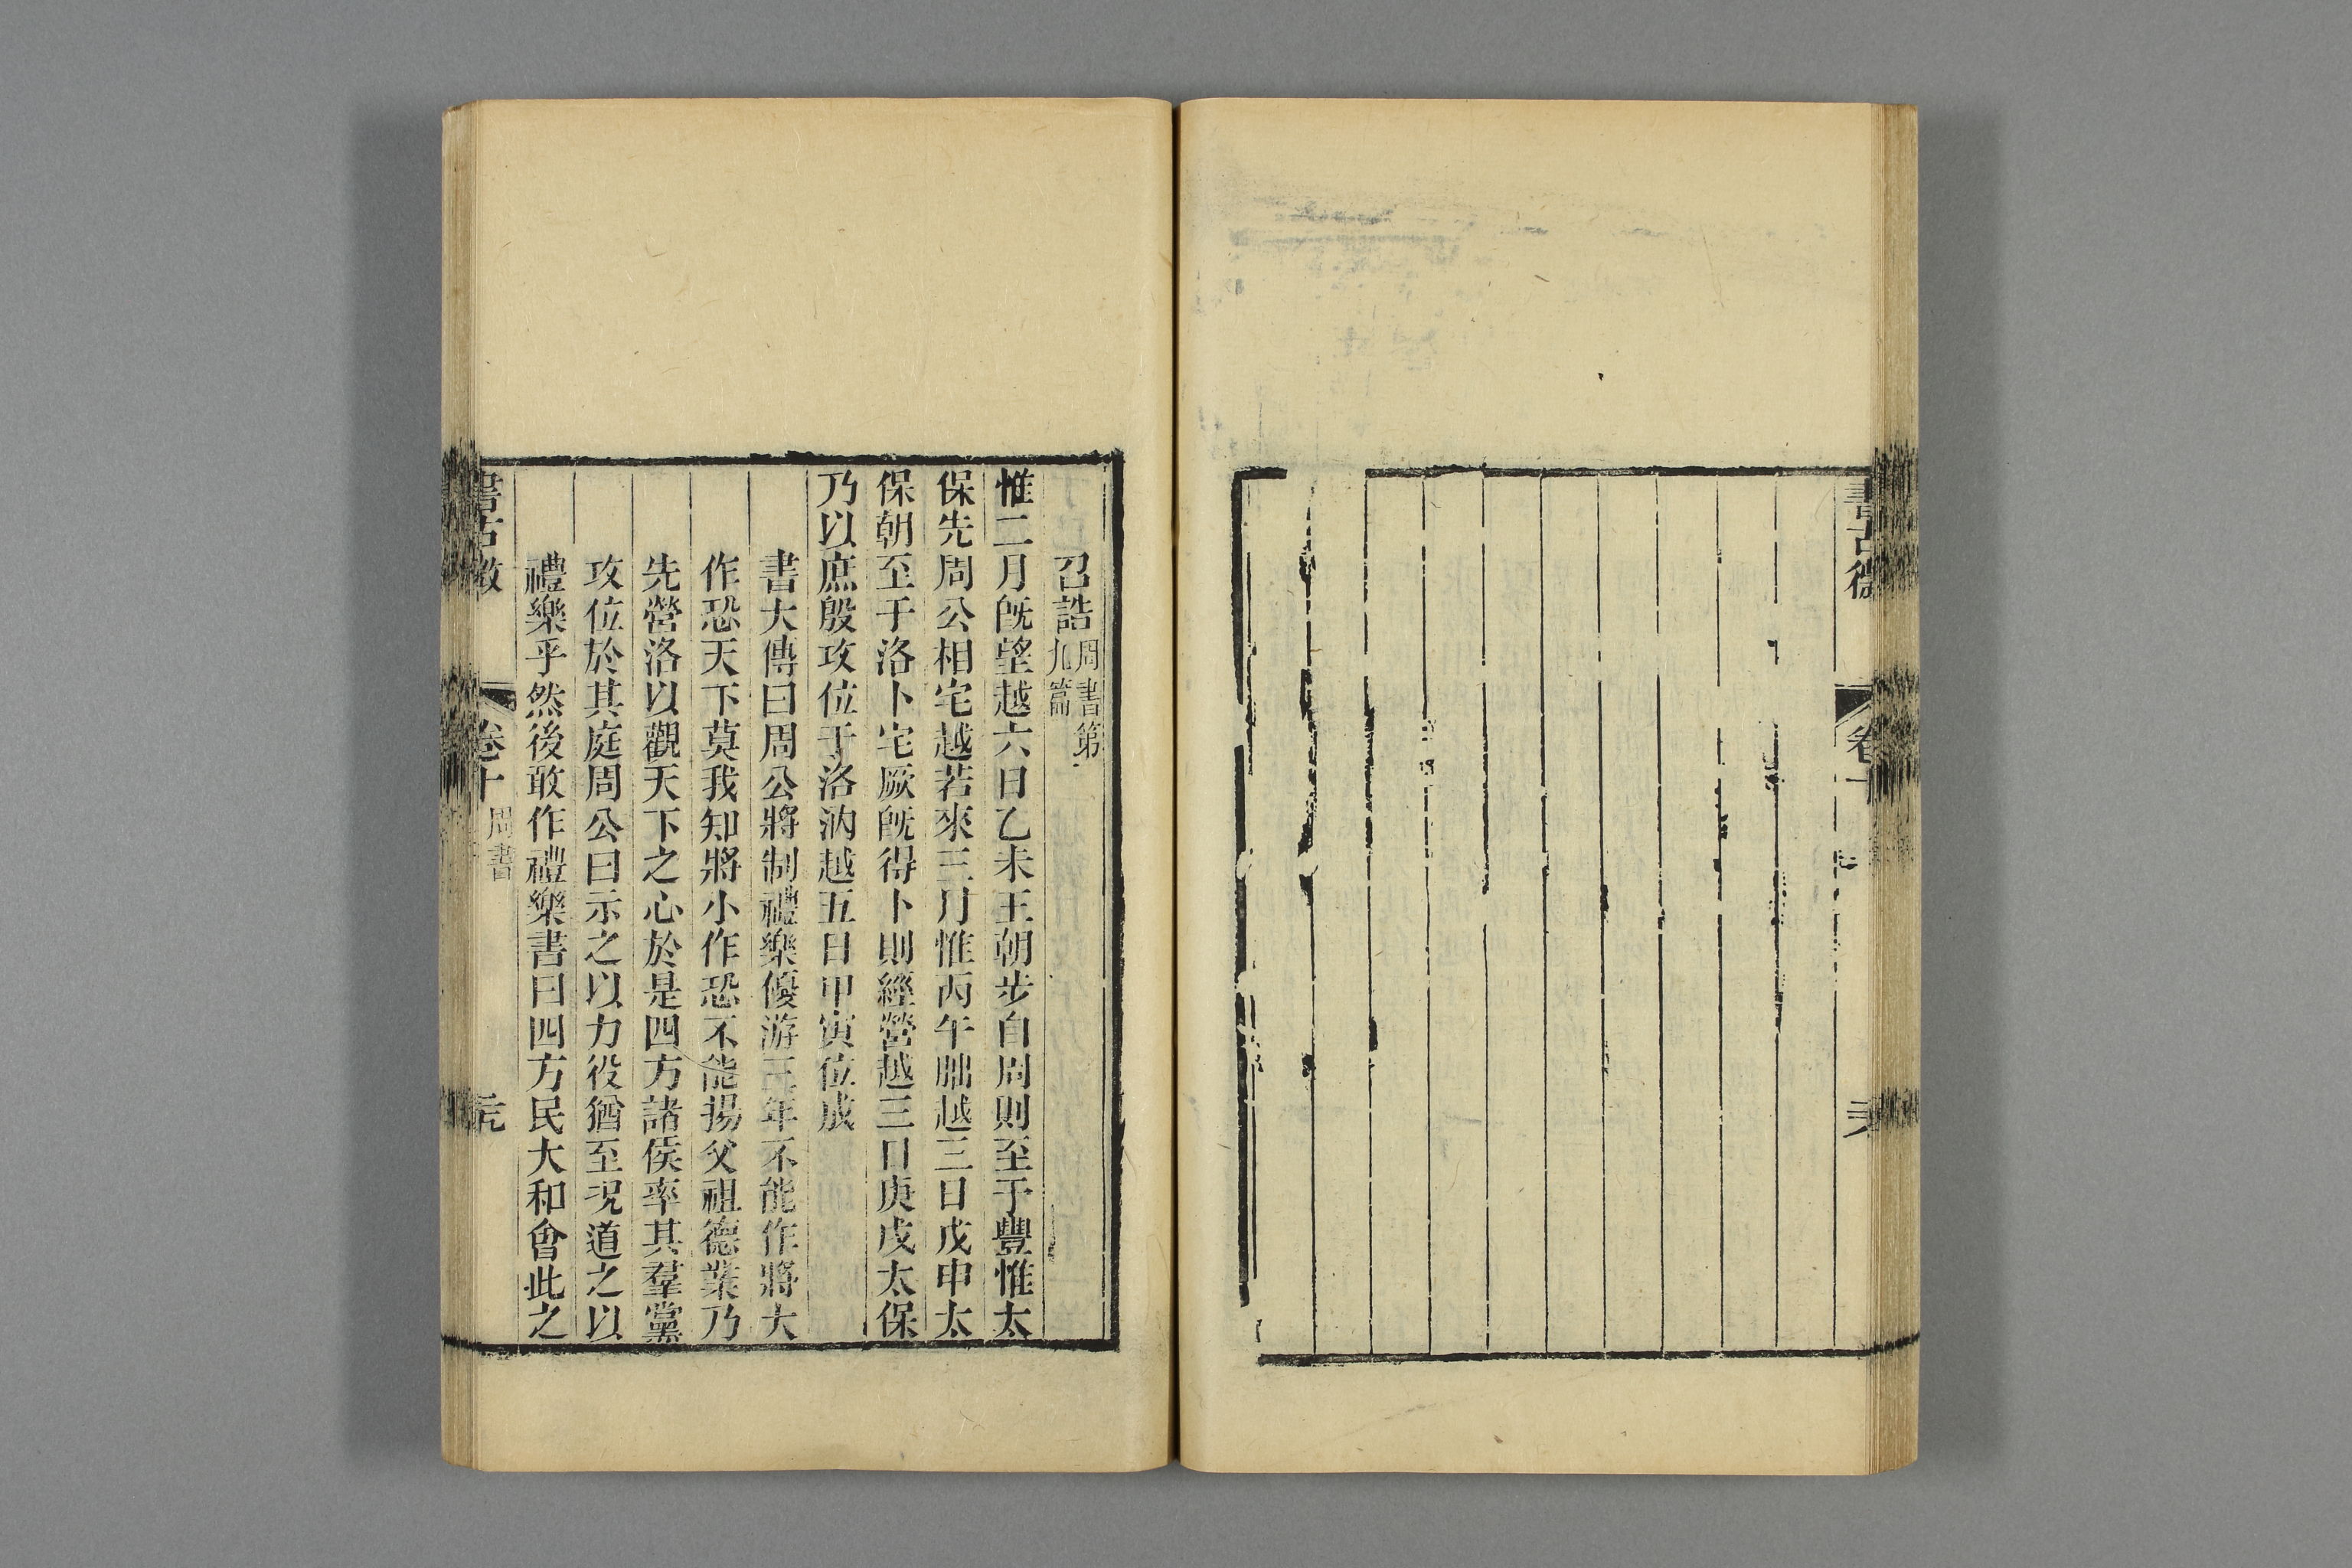 書古微
卷十
召誥 周書第九篇
惟二月旣望越六日乙未王朝步自周則至于豐惟太
保先周公相宅越若來三月惟丙午朏越三日戊申太
保朝至于洛卜宅厥旣得卜則經營越三日庚戌太保
乃以庶殷攻位于洛汭越五日甲寅位成
書大傳曰周公將制禮樂優游三年不能作將大
作恐天下莫我知將小作恐不能揚父祖德業乃
先營洛以觀天下之心於是四方諸侯率其羣黨
攻位於其庭周公曰示之以力役猶至況道之以
禮樂乎然後敢作禮樂書曰四方民大和會此之
書古微 卷十 周書